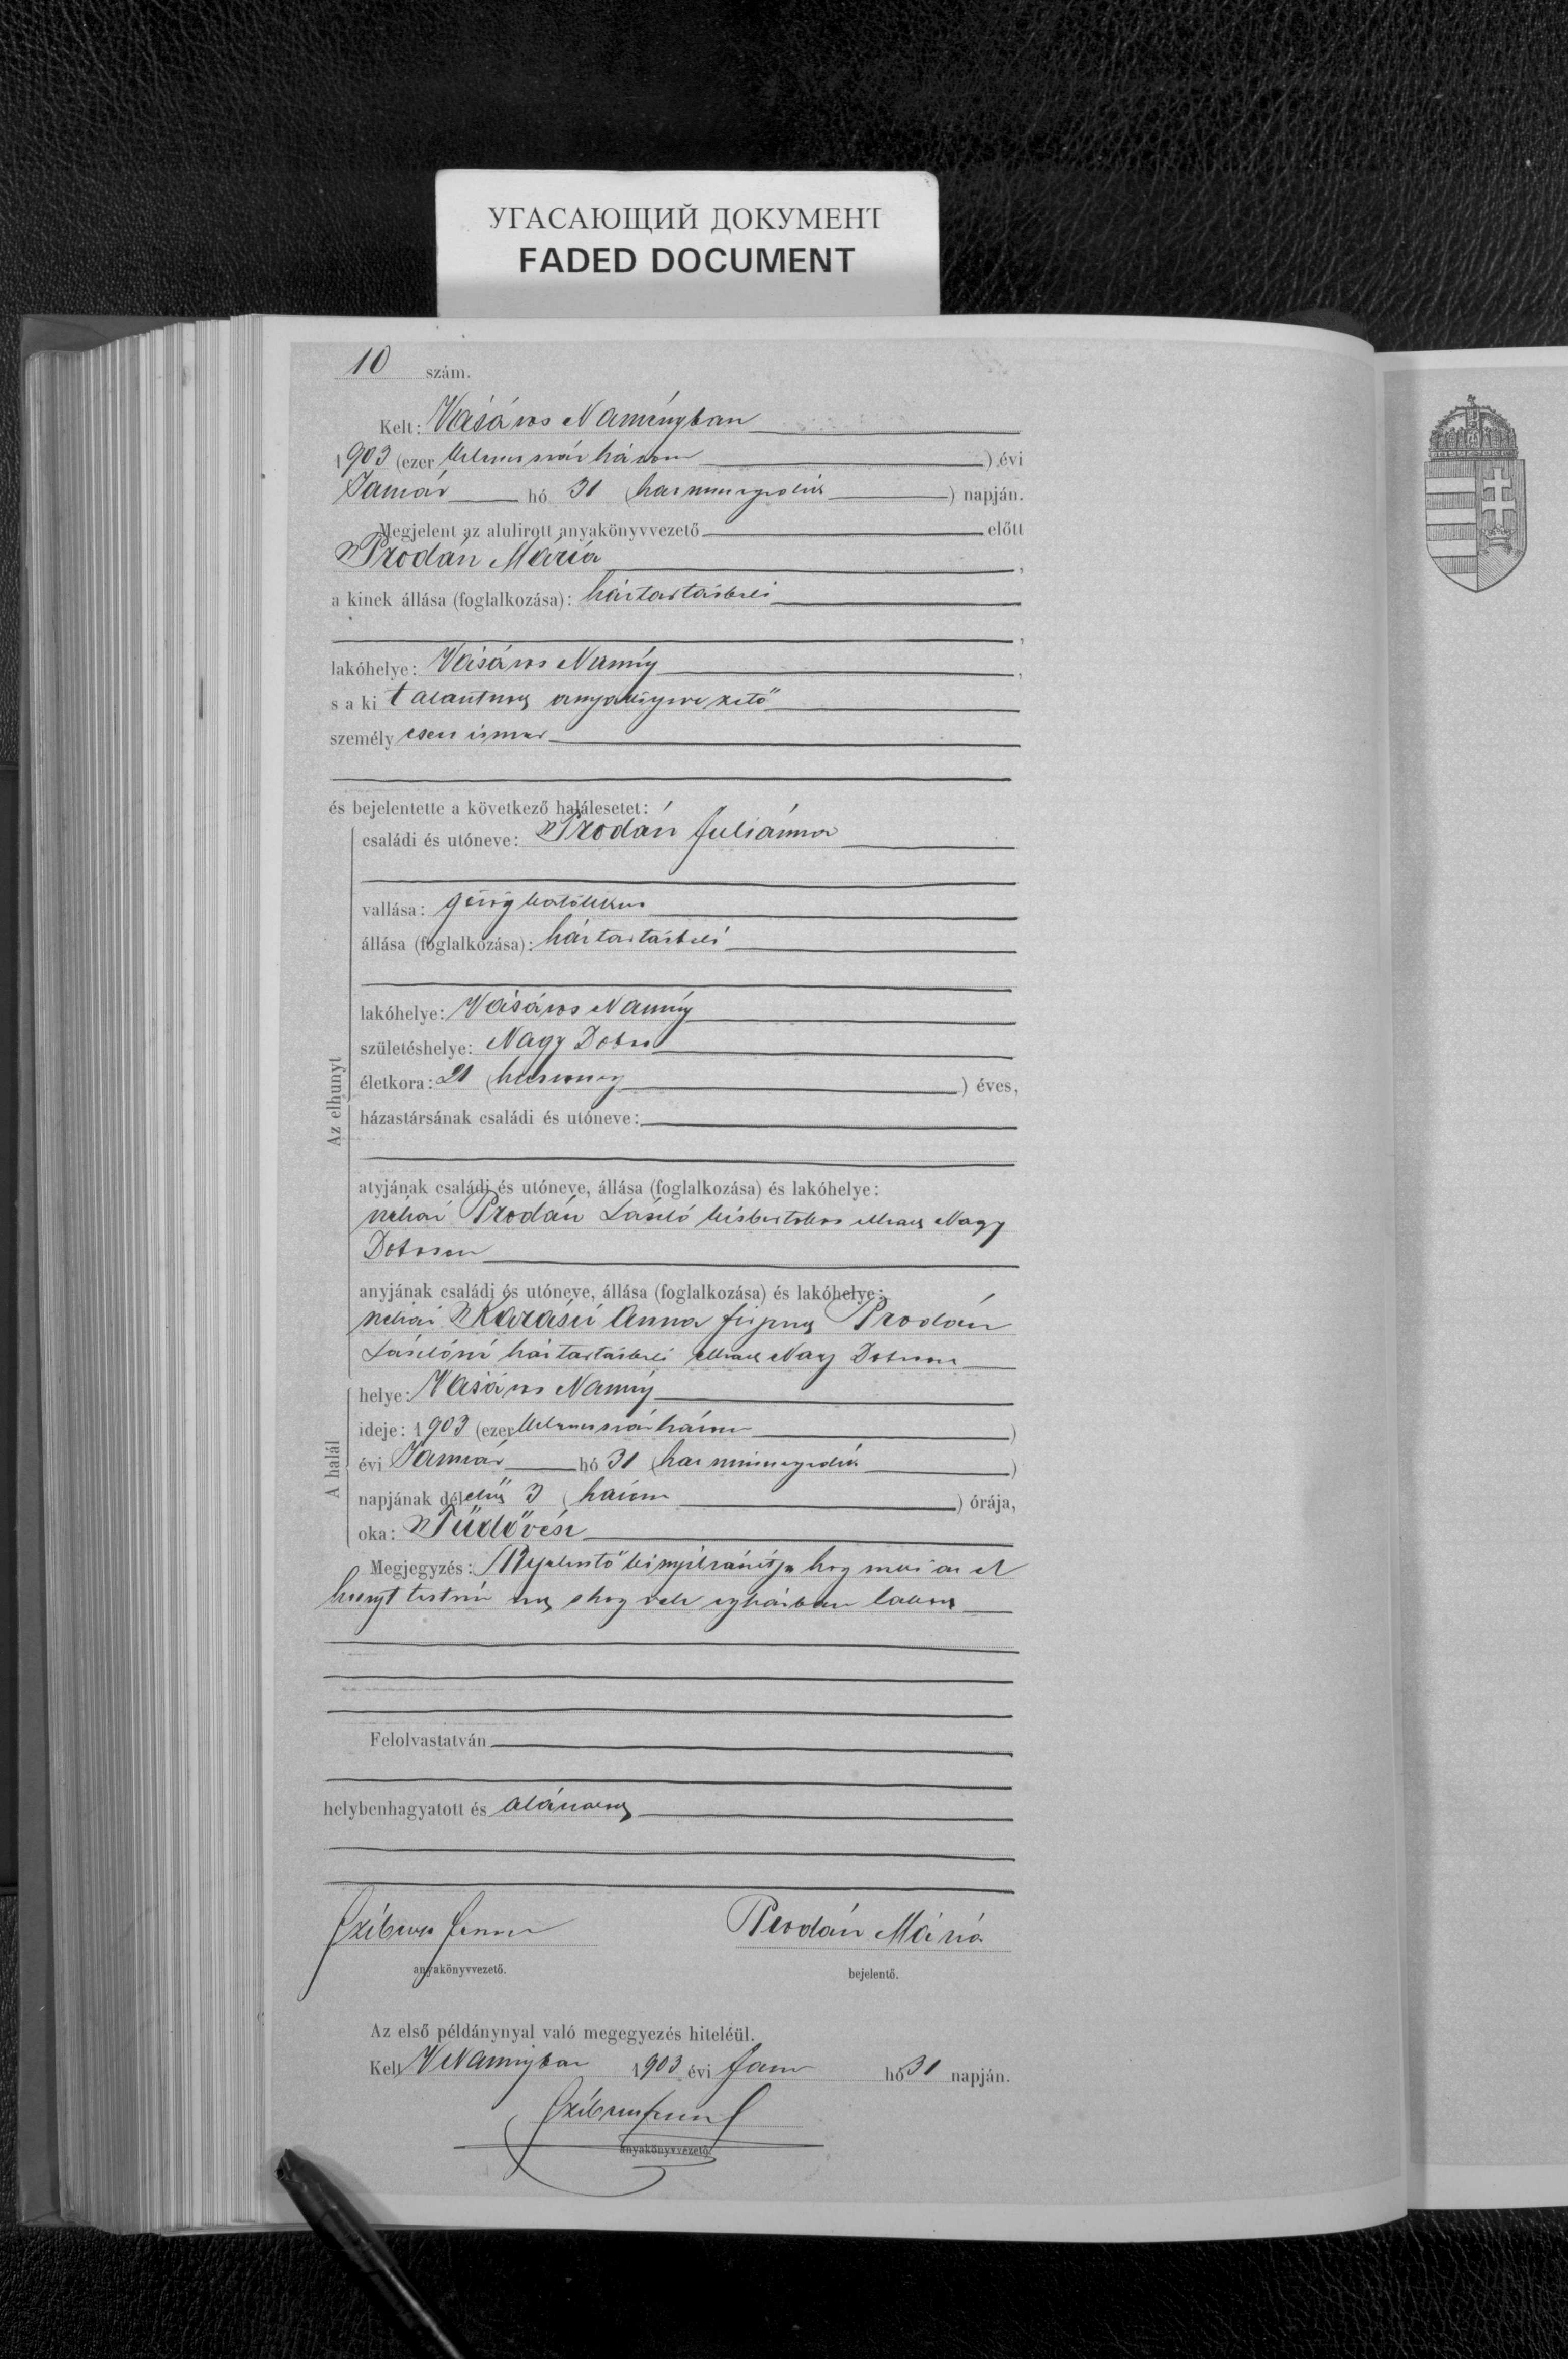 УГАСАЮЩИЙ ДОКУМЕНТ
FADED DOCUMENT
10 szám.
Kelt: Vásáros Naményban
1903 (ezer kilenczszázhárom) évi
Január hó 31 (harminczegyedik) napján.
Megjelent az alulirott anyakönyvvezető előtt
Prodán Mária,
a kinek állása (foglalkozása): háztartásbeli
,
lakóhelye: Vásáros Namény,
s a ki t alantirt anyakönyvvezető
személyesen ismer
és bejelentette a következő halálesetet:
családi és utóneve: Prodán Juliánna
vallása: görög katólikus
állása (foglalkozása): háztartásbeli
lakóhelye: Vásáros Namény
születéshelye: Nagy Dobos
életkora: 21 (huszonegy) éves,
házastársának családi és utóneve:
atyjának családi és utóneve, állása (foglalkozása) és lakóhelye:
néhai Prodán László kisbirtokos elhalt Nagy
Doboson
anyjának családi és utóneve, állása (foglalkozása) és lakóhelye:
néhai Anna Prodán
Lászlóné háztartásbeli elhalt Nagy Doboson
Az elhunyt
helye: Vásáros Namény
ideje: 1903 (ezer kilenczszázhárom)
évi Január hó 31 (harminczegyedik)
napjának délelőtt 3 (három) órája,
oka: Tüdővész
A halál
Megjegyzés: Bejelentő kinyilvánítja hogy az el
hunyt s hogy vele egyházban lakott
Felolvastatván
helybenhagyatott és aláíratott
Prodán Mária
anyakönyvvezető.
bejelentő.
Az első példánynyal való megegyezés hiteléül.
Kelt VNaményban 1903 évi Jan hó 31 napján.
anyakönyvvezető